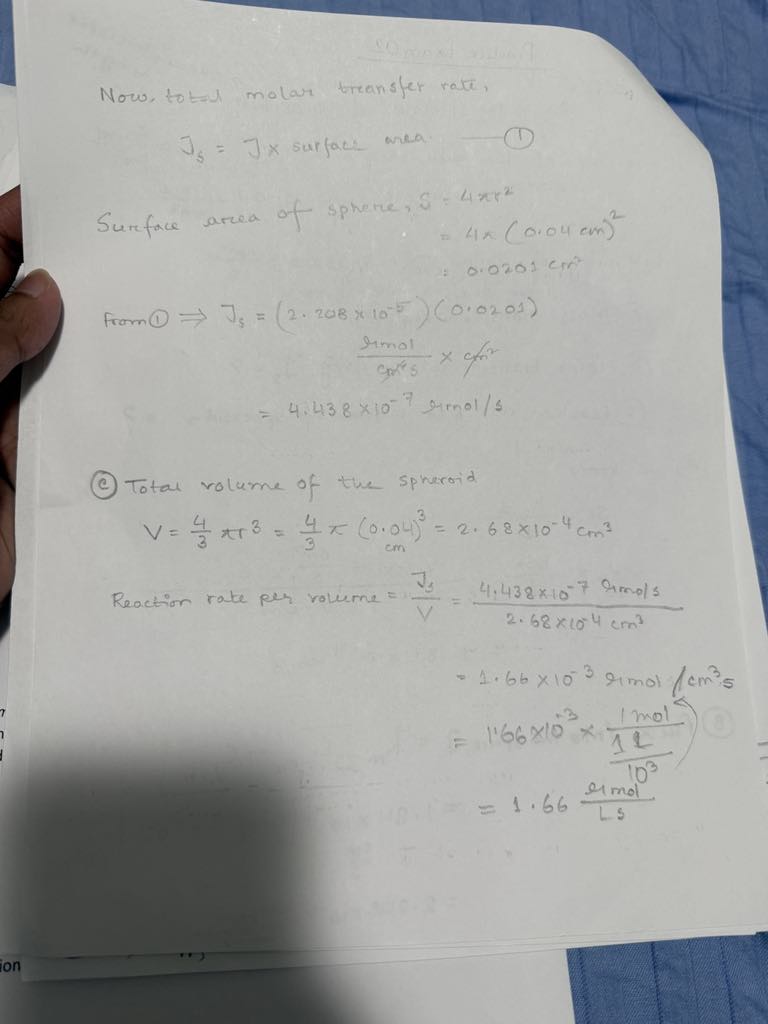 Now, total molar transfer rate,
J_s = J × surface area. — ①
Surface area of sphere, S = 4πr²
= 4π (0.04 cm)²
= 0.0201 cm²
From ① ⇒ J_s = (2.208 × 10⁻⁵) (0.0201)
μmol/cm²s × cm²
= 4.438 × 10⁻⁷ μmol/s
ⓒ Total volume of the spheroid
V = 4/3 πr³ = 4/3 π (0.04)³ cm = 2.68 × 10⁻⁴ cm³
Reaction rate per volume = J_s/V = 4.438 × 10⁻⁷ μmol/s / 2.68 × 10⁻⁴ cm³
= 1.66 × 10⁻³ μmol/cm³s
= 1.66 × 10⁻³ × 1 mol / 1 L / 10³
= 1.66 μmol/Ls
ion